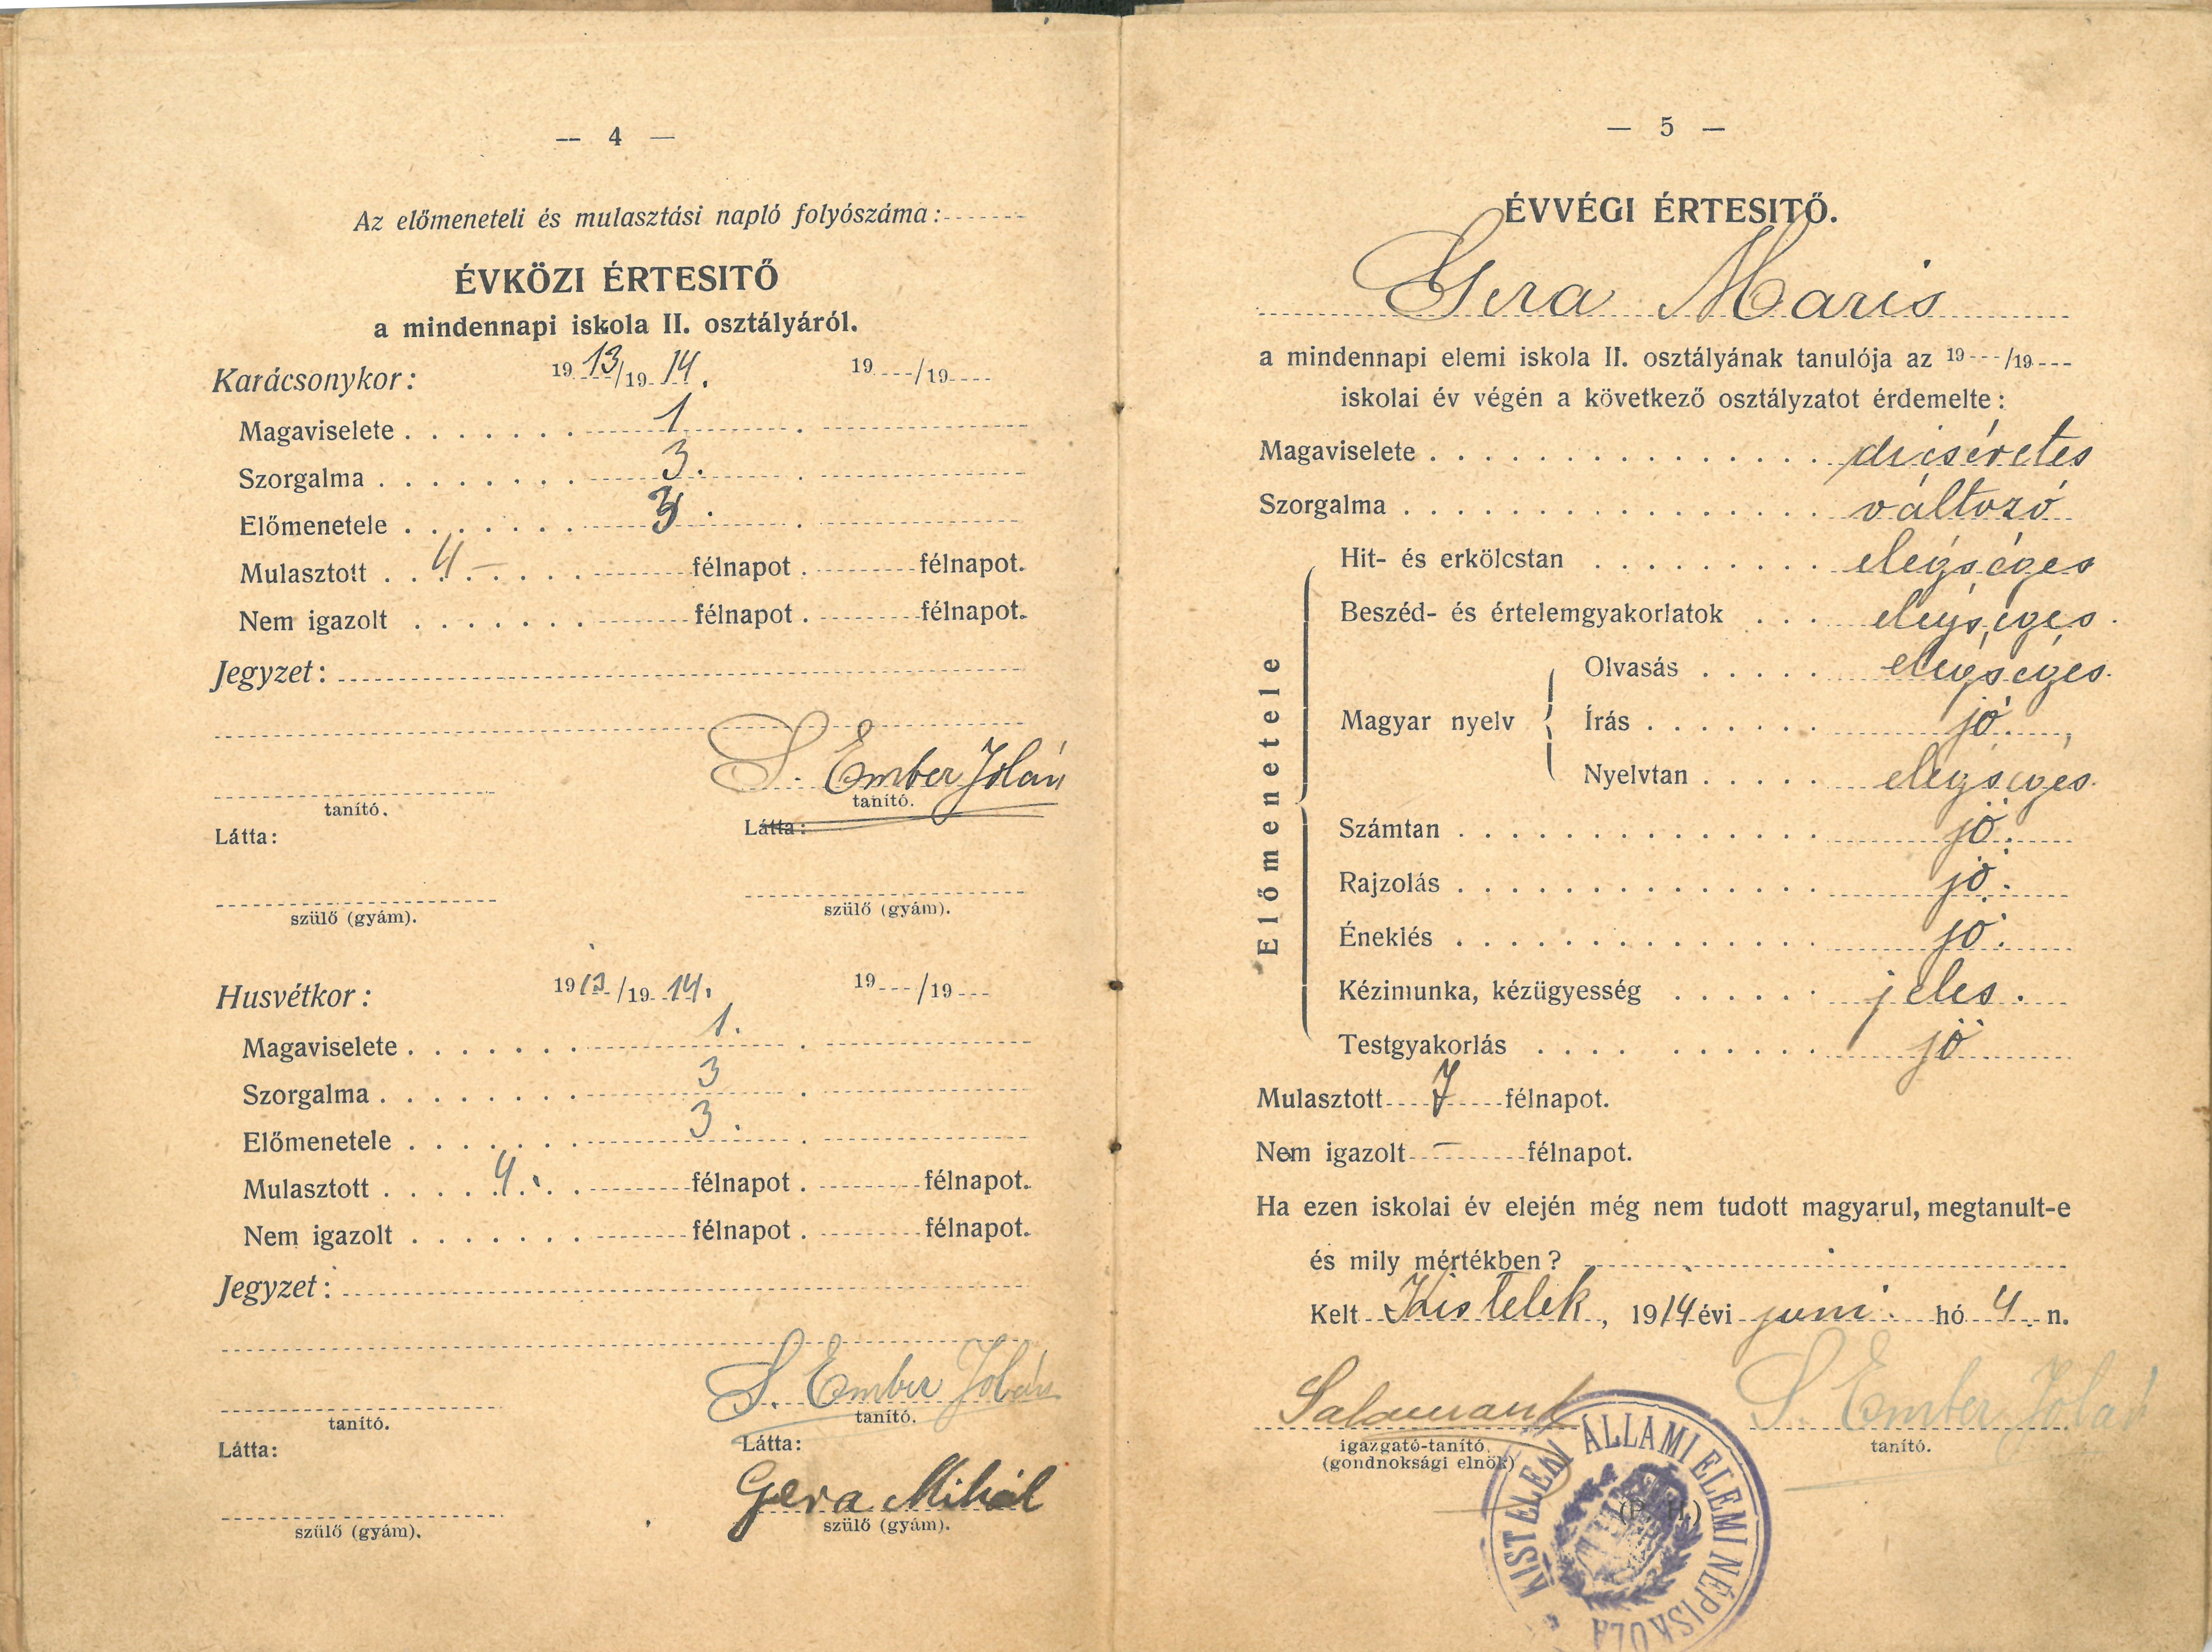 — 4 —
Az előmeneteli és mulasztási napló folyószáma:
ÉVKÖZI ÉRTESITŐ
a mindennapi iskola II. osztályáról.
Karácsonykor: 1913/1914. 19 /19
Magaviselete 1
Szorgalma 3.
Előmenetele 3.
Mulasztott 4 – félnapot. félnapot.
Nem igazolt félnapot. félnapot.
Jegyzet:
S. Ember Jolán
tanító. tanító.
Látta: Látta:
szülő (gyám). szülő (gyám).
Husvétkor: 1913/1914. 19 /19
Magaviselete 1.
Szorgalma 3
Előmenetele 3.
Mulasztott 4. félnapot. félnapot.
Nem igazolt félnapot. félnapot.
Jegyzet:
S. Ember Jolán
tanító. tanító.
Látta: Látta:
Gera Mihál
szülő (gyám). szülő (gyám).
— 5 —
ÉVVÉGI ÉRTESITŐ.
Gera Maris
a mindennapi elemi iskola II. osztályának tanulója az 19 /19
iskolai év végén a következő osztályzatot érdemelte:
Magaviselete dicséretes
Szorgalma változó
Előmenetele
Hit- és erkölcstan elégséges
Beszéd- és értelemgyakorlatok elégséges.
Magyar nyelv
Olvasás elégséges.
Írás jó.
Nyelvtan elégséges.
Számtan jó.
Rajzolás jó.
Éneklés jó.
Kézimunka, kézügyesség jeles.
Testgyakorlás jó
Mulasztott 7 félnapot.
Nem igazolt – félnapot.
Ha ezen iskolai év elején még nem tudott magyarul, megtanult-e
és mily mértékben?
Kelt Kistelek, 1914 évi juni. hó 4. n.
S. Ember Jolán
igazgató-tanító tanító.
(gondnoksági elnök)
(P. H.)
KISTELEKI ÁLLAMI ELEMI NÉPISKOLA